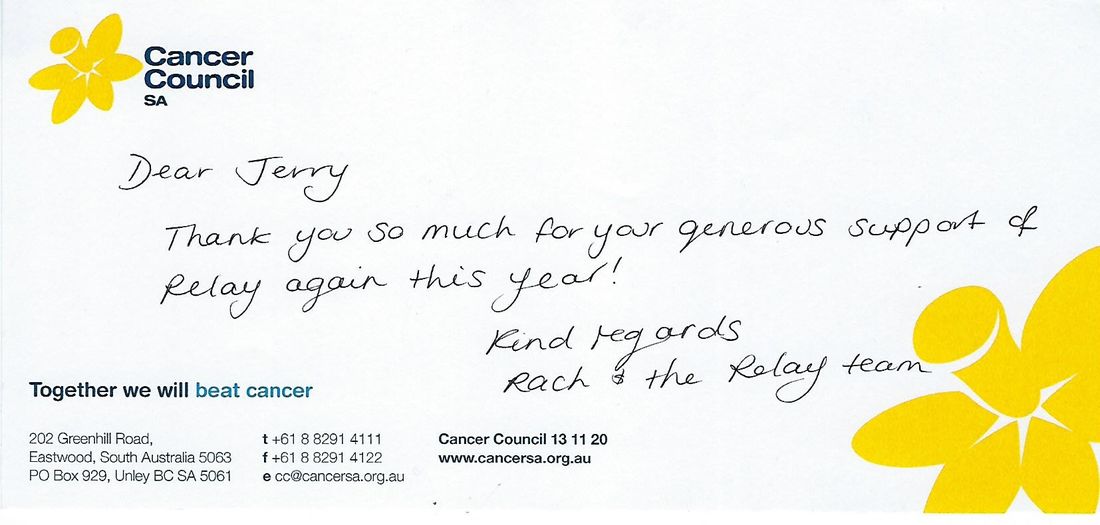 Cancer
Council
SA
Dear Jerry
Thank you so much for your generous support of
Relay again this year!
Kind regards
Rach & the Relay team
Together we will beat cancer
202 Greenhill Road,
Eastwood, South Australia 5063
PO Box 929, Unley BC SA 5061
t +61 8 8291 4111
f +61 8 8291 4122
e cc@cancersa.org.au
Cancer Council 13 11 20
www.cancersa.org.au